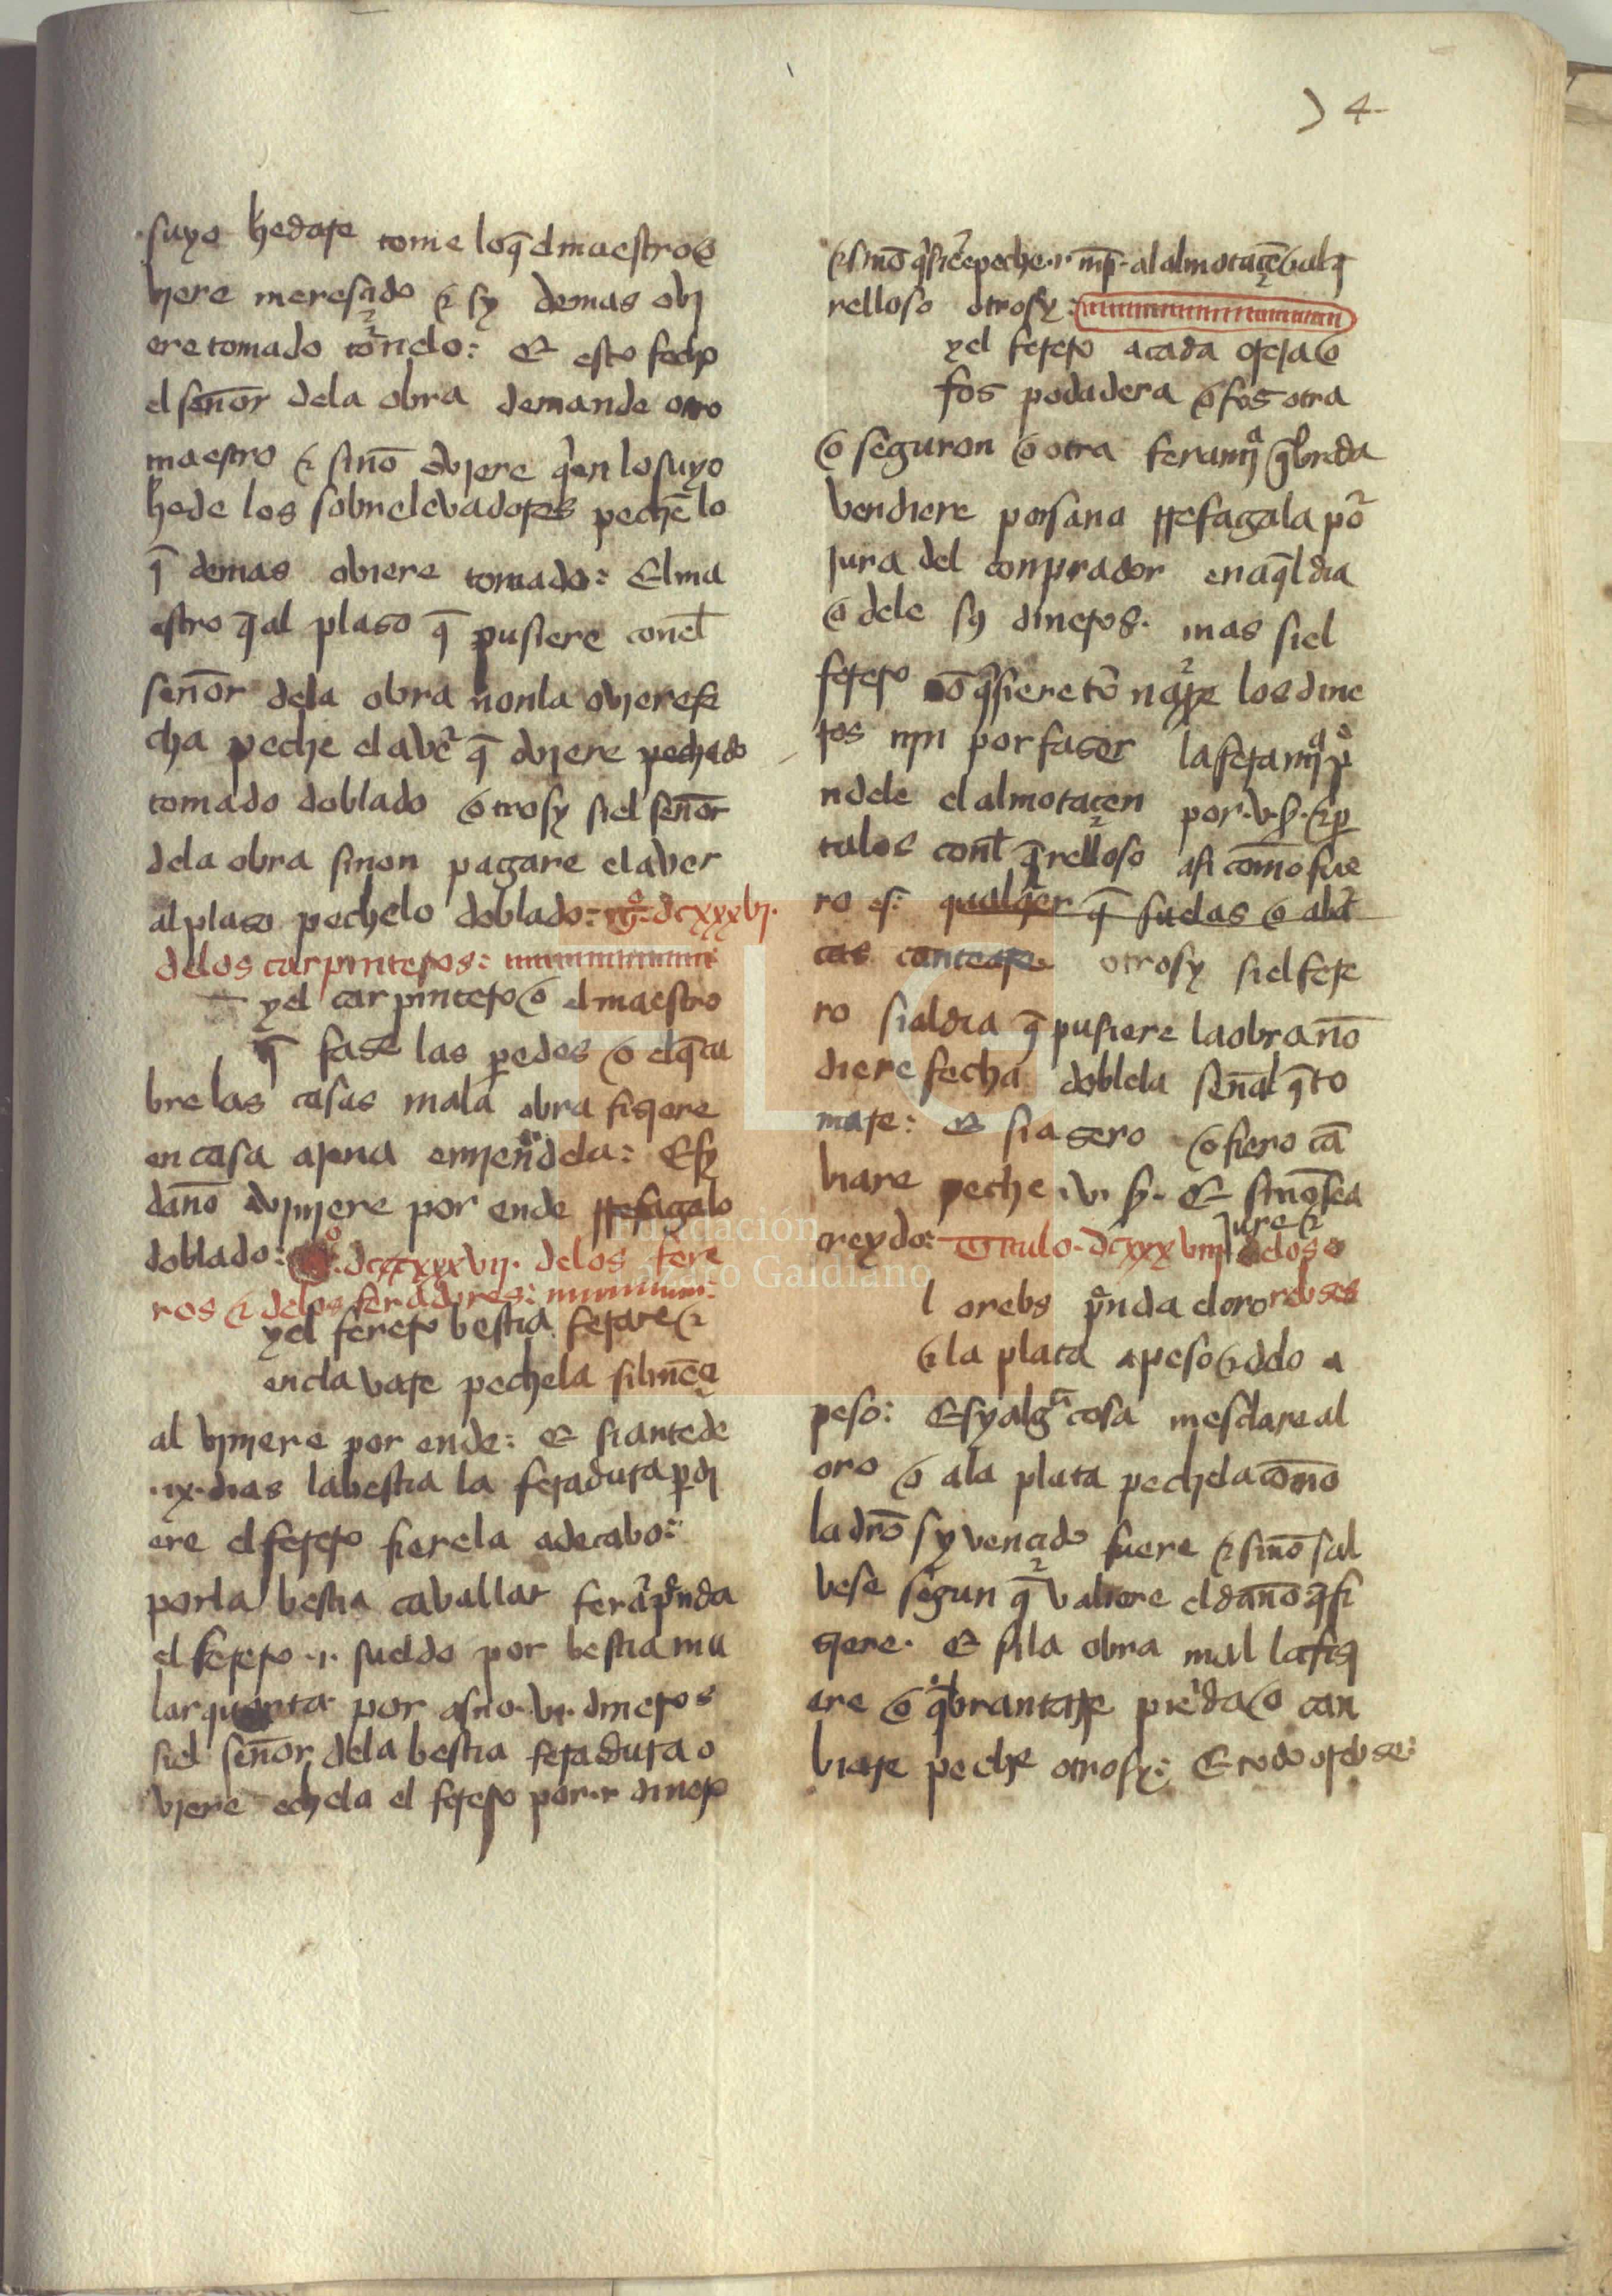 74
suyo hedare tome loq̄ el maestro o
viere meresçido & sy demas obi
ere tomado tornelo: Et esto fecho
el señor dela obra demande otro
maestro & sinō oviere q̄en lo suyo
hede los sobrelevadores pechēlo
q̄ demas obiere tomado: El ma
estro q̄ al plaso q̄ pusiere conel
señor dela obra nonla oviere fe
cha peche el aver q̄ oviere pechado
tomado doblado otrosy si el señor
dela obra sinon pagare el aver
al plaso pechelo doblado: dcxxxvj.
delos carpinteros:
yel carpintero o el maestro
q̄ fase las pedes o elq̄ cu
bre las casas mala obra fisiere
en casa ajena emiendela: E sy
daño viniere por ende rrefagalo
doblado: dcxxxvij. delos fere
ros & delos feradores:
yel ferero bestia ferare &
enclavare pechela
al viniere por ende: Et si ante de
.ix. dias la bestia la feradura pdi
ere el ferero fierela a de cabo:
por la bestia cavallar pnda
el ferero .i. sueldo por bestia mu
lar por asno .vi. dineros
si el señor dela bestia feradura o
viere echela el ferero por .i. dinero
& sinō q̄siere peche .i. mr̄. al almotaçē & al q̄
relloso otrosy:
yel ferero acada
fos podadera o fos otra
o seguron o otra feram̄ q̄brada
vendiere por sana rrefagala por
jura del conprador en aq̄l dia
o dele sy dineros. mas si el
ferero nō q̄siere tornare los dine
ros nin por faser la feram̄ p̄
ndele el almotaçen por .v. s̄. &
talos conel q̄relloso asi como fue
ro es: qualq̄er q̄ suelas o abar
cas otrosy si el fere
ro si al dia q̄ pusiere la obra nō
diere fecha doblela señal q̄ to
mare: Et si asero o fiero cā
biare peche .v. s̄. Et sinō sea
creydo: Titulo .dcxxxviij. jure & delos o
l orebs p̄nda el oro rebses
& la plata a peso & delo a
peso: E sy alguna cosa mesclare al
oro o ala plata pechela como
ladrō sy vençido fuere & sinō sal
vese segun q̄ valiere el daño q̄ fi
siere. Et si la obra mal la fisi
ere o q̄brantare pieda o can
biare peche otrosy: E todo orebse:
Fundación
Lázaro Galdiano